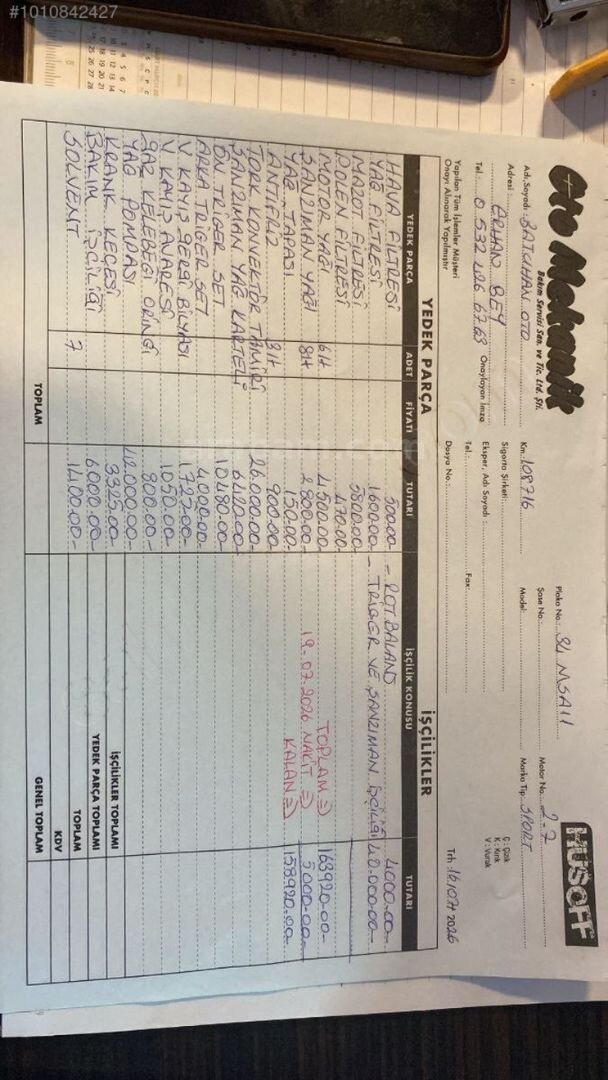 #1010842427
Oto Mekanik
Bakım Servisi San. ve Tic. Ltd. Şti.
HUSOFF
Adı, Soyadı: BATUHAN OTO
Adresi: ERHAN BEY
Tel.: 0 532 406 67 63 Onaylayan İmza
Yapılan Tüm İşlemler Müşteri
Onayı Alınarak Yapılmıştır
Km.: 108716
Sigorta Şirketi:
Eksper, Adı Soyadı:
Tel.: Fax:
Dosya No.:
Plaka No.: 34 MSA 11
Şase No.: Motor No.: 2-7
Model: Marka Tip.: SPORT
Ç : Çizik
K : Kırık
V : Vuruk
Trh.: 16/07/2026
YEDEK PARÇA İŞÇİLİKLER
YEDEK PARÇA ADET FİYATI TUTARI İŞÇİLİK KONUSU TUTARI
HAVA FİLTRESİ 500.00- ROT BALAND 4000.00-
YAĞ FİLTRESİ 1600.00- TRİGER VE ŞANZIMAN İŞÇİLİĞİ 40.000.00-
MAZOT FİLTRESİ 5800.00
POLEN FİLTRESİ 470.00
MOTOR YAĞI 6 lt 4500.00- TOPLAM => 163920.00-
ŞANZIMAN YAĞI 8 lt 2800.00- 19.07.2026 NAKİT => 5000.00-
YAĞ TAPASI 150.00- KALAN => 158920.00
ANTİFİRİZ 3 lt 900.00-
TORK KONVEKTÖR TAMİRİ 26.000.00-
ŞANZIMAN YAĞ KARTELİ 6420.00-
ÖN TRİGER SET 10480.00-
ARKA TRİGER SET 4000.00-
V KAYIŞ GERGİ BİLYASI 1727.00-
V KAYIŞ AVARESİ 1050.00-
GAZ KELEBEĞİ ORİNGİ 800.00-
YAĞ POMPASI 42000.00-
KRANK KEÇESİ 3325.00-
BAKIM İŞÇİLİĞİ 6000.00-
SOLVENT 7 1400.00-
TOPLAM
İŞÇİLİKLER TOPLAMI
YEDEK PARÇA TOPLAMI
TOPLAM
KDV
GENEL TOPLAM